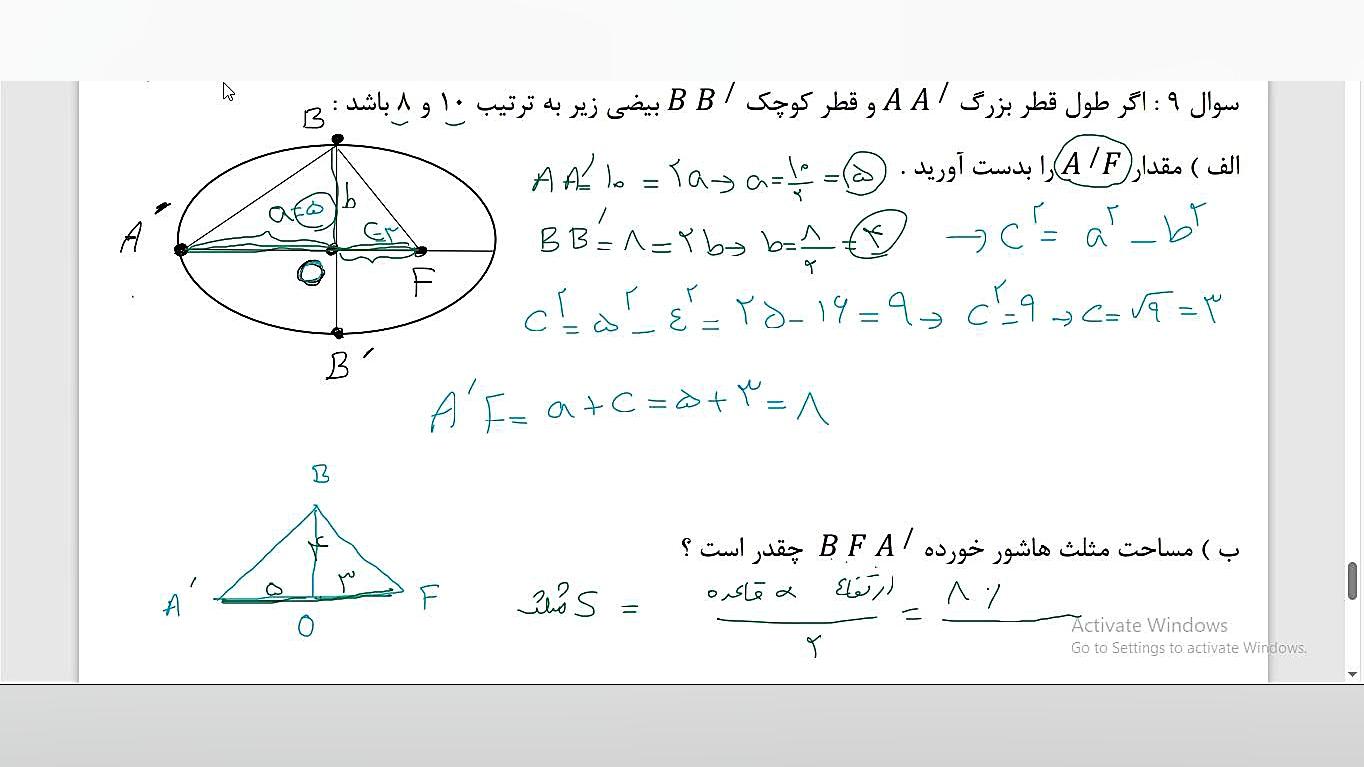 سوال ۹ : اگر طول قطر بزرگ A A / و قطر کوچک B B / بیضی زیر به ترتیب ۱۰ و ۸ باشد :
الف ) مقدار A / F را بدست آورید .
AA' = ۱۰ = ۲a → a = ۱۰/۲ = ۵
BB' = ۸ = ۲b → b = ۸/۲ = ۴ → C² = a² − b²
C² = ۵² − ٤² = ۲۵ − ۱۶ = ۹ → C² = ۹ → C = √۹ = ۳
A'F = a + C = ۵ + ۳ = ۸
B
a=۵
b
C=۳
A'
O
F
B'
ب ) مساحت مثلث هاشور خورده B F A / چقدر است ؟
S مثلث = ارتفاع × قاعده / ۲ = ۸ ×
B
۴
۵
۳
A'
O
F
Activate Windows
Go to Settings to activate Windows.